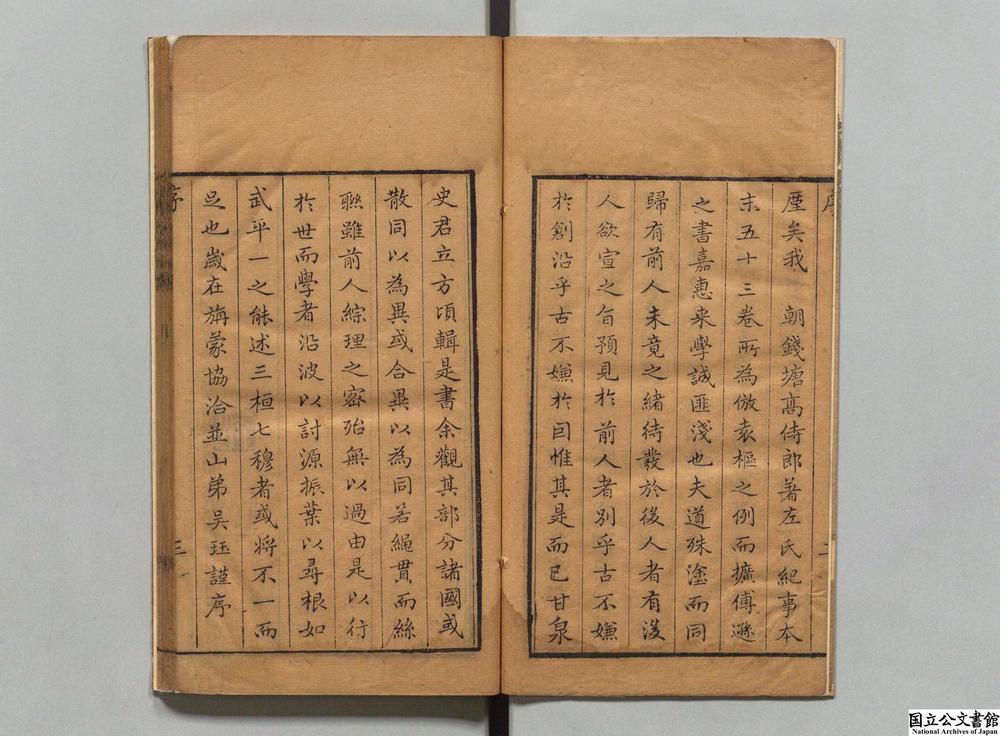 序
二
廑矣我　朝錢塘高侍郎著左氏紀事本
末五十三卷所為倣袁樞之例而擴傅遜
之書嘉惠来學誠匪淺也夫道殊塗而同
歸有前人未竟之緒待發於後人者有後
人欲宣之旨預見於前人者別乎古不嫌
於創沿乎古不嫌於因惟其是而已甘泉
史君立方項輯是書余觀其部分諸國或
散同以為異或合異以為同若繩貫而絲
聯雖前人綜理之密殆無以過由是以行
於世而學者沿波以討源振葉以尋根如
武平一之能述三桓七穆者或將不一而
足也歲在旃蒙協洽並山弟吳珏謹序
序
三
国立公文書館
National Archives of Japan